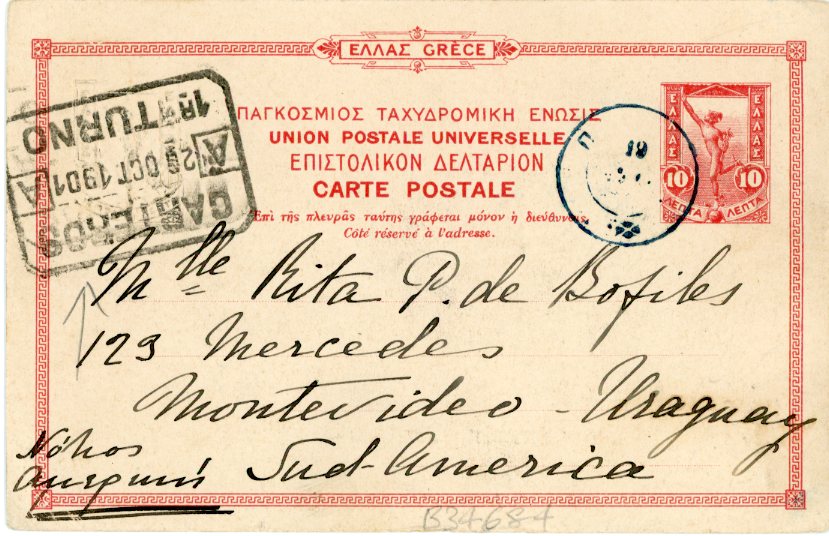 ΕΛΛΑΣ GRÈCE
ΠΑΓΚΟΣΜΙΟΣ ΤΑΧΥΔΡΟΜΙΚΗ ΕΝΩΣΙΣ
UNION POSTALE UNIVERSELLE
ΕΠΙΣΤΟΛΙΚΟΝ ΔΕΛΤΑΡΙΟΝ
CARTE POSTALE
Ἐπὶ τῆς πλευρᾶς ταύτης γράφεται μόνον ἡ διεύθυνσις.
Côté réservé à l'adresse.
ΕΛΛΑΣ ΕΛΛΑΣ
10 10
ΛΕΠΤΑ ΛΕΠΤΑ
CARTEROS
A 29 OCT 1901 A
1er TURNO
19
Mlle Rita P. de Bofiles
123 Mercedes
Montevideo - Uraguay
Sud-America
Νότιος
Αμερική
B34684